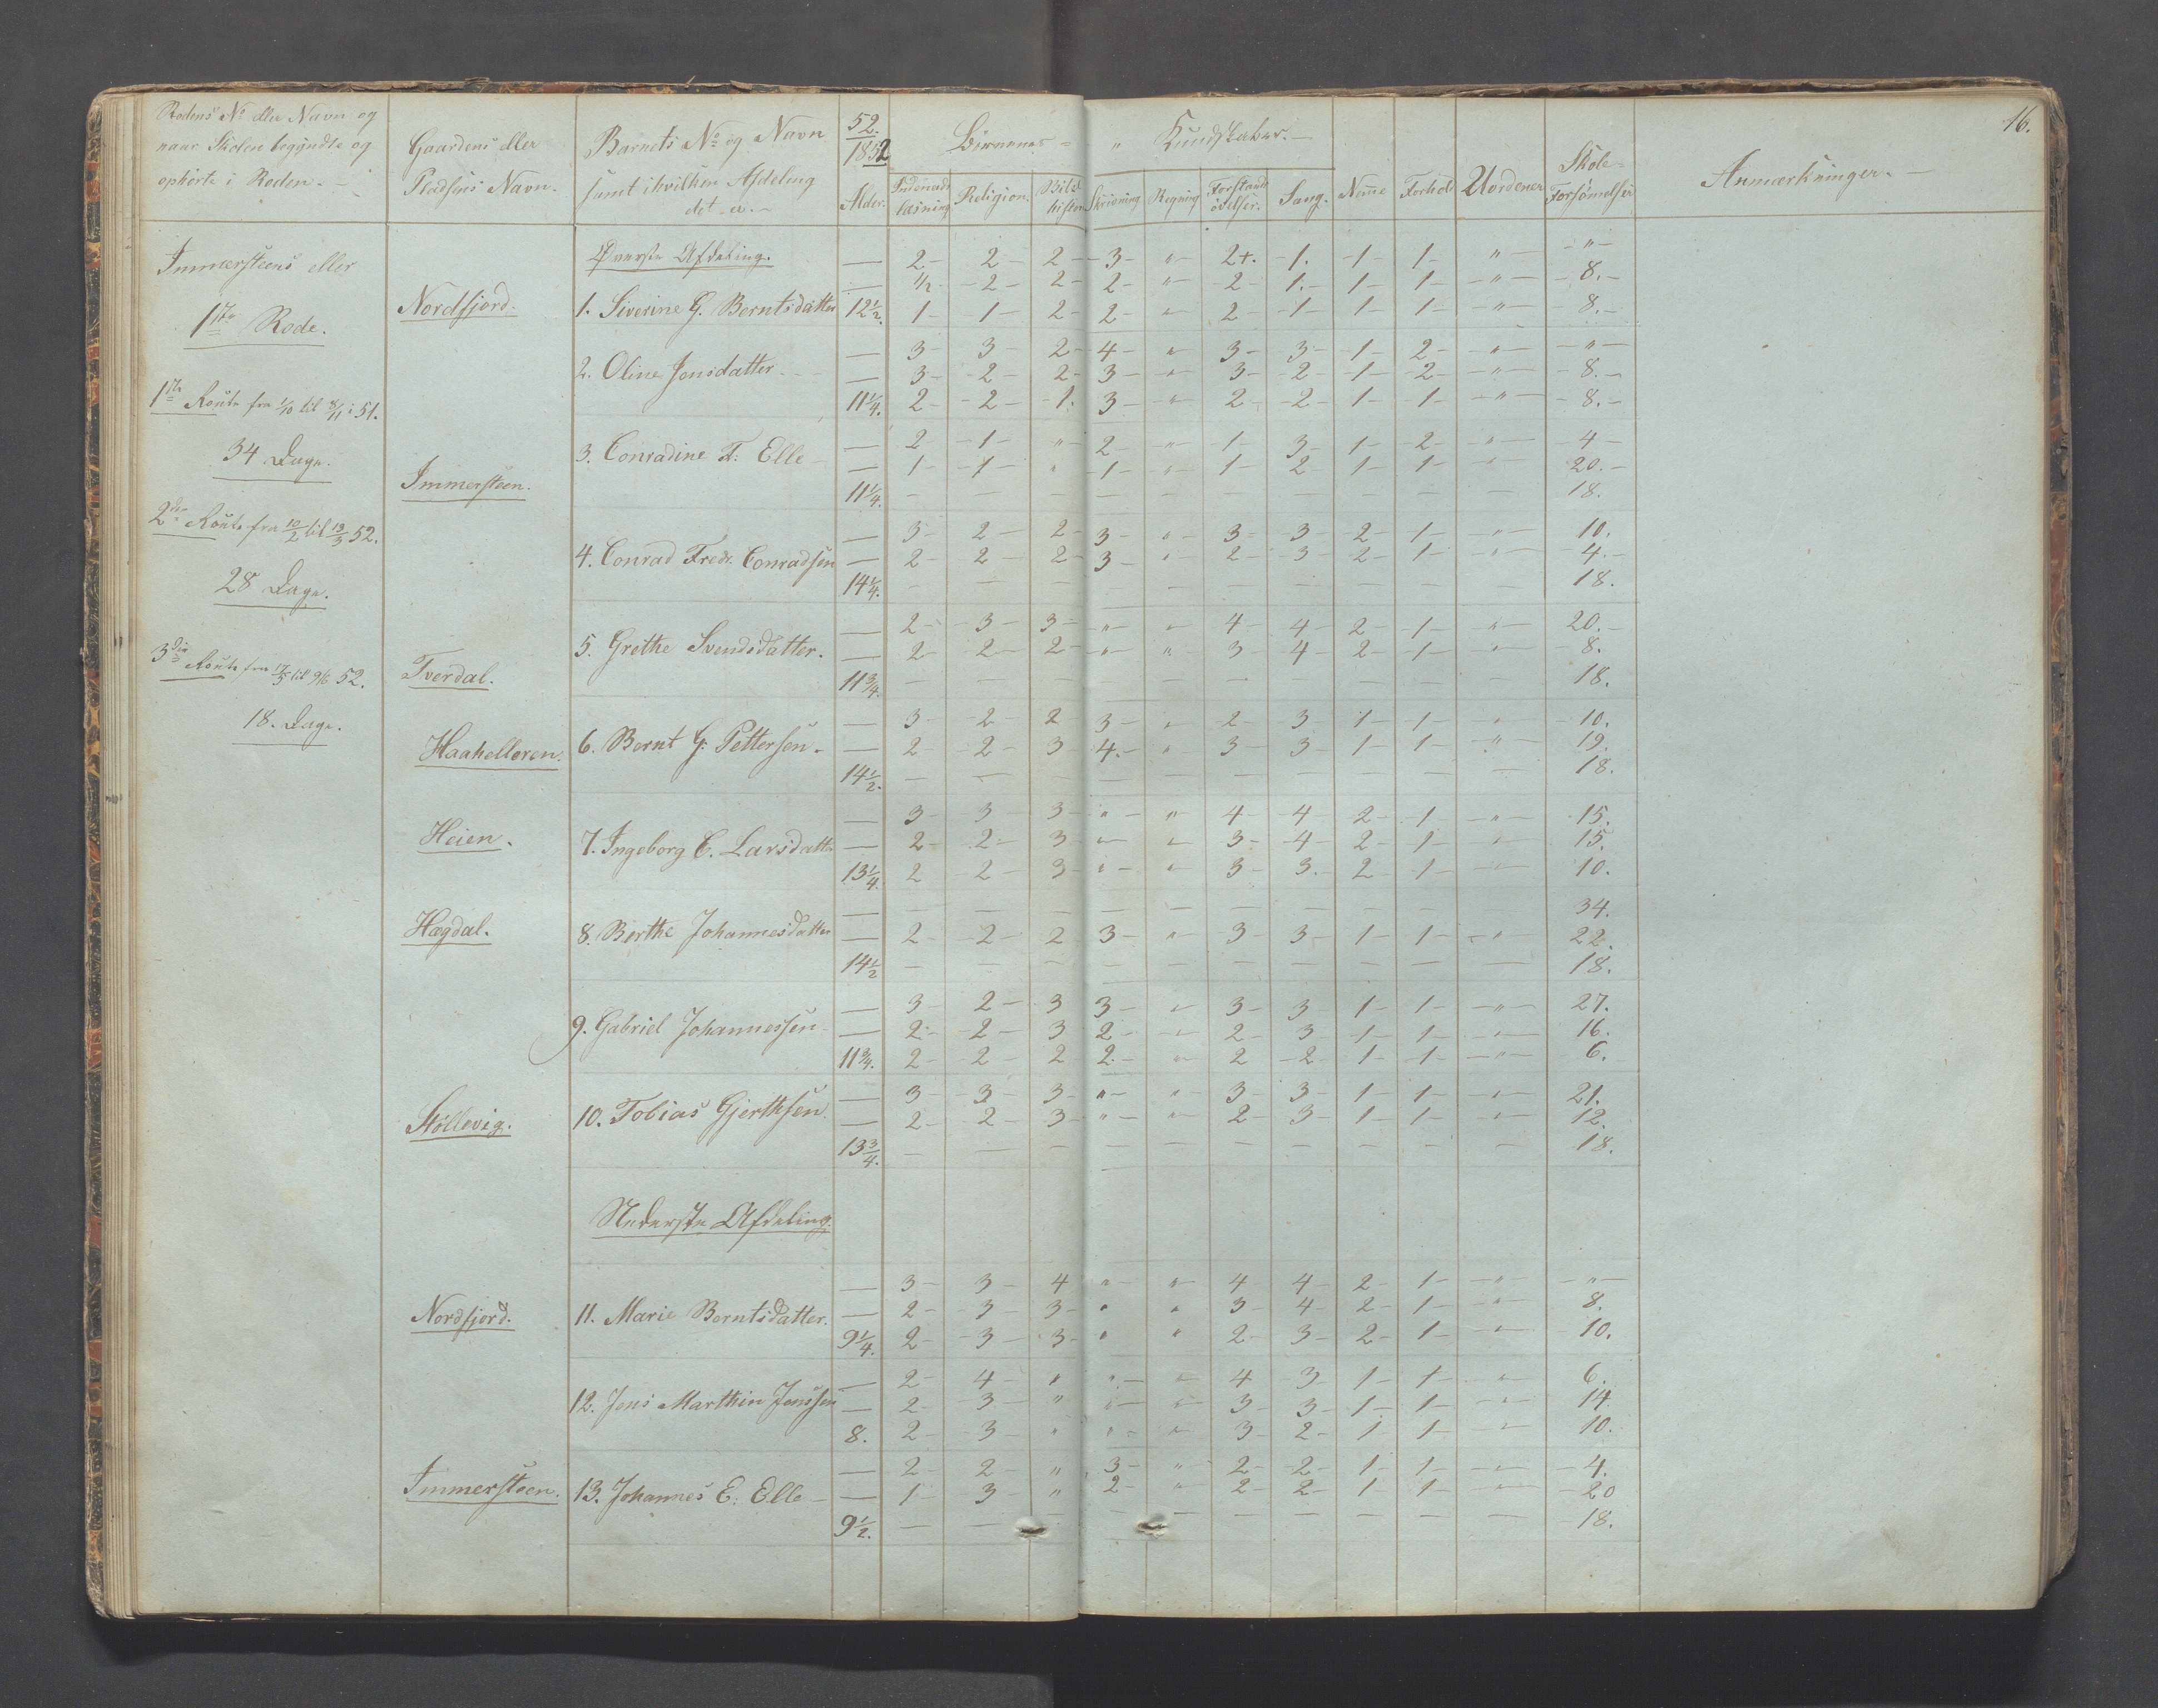 16.
Rodens No eller Navn og
naar Skolen begyndte og
ophörte i Roden. -
Gaardens eller
Pladsens Navn.
Barnets No og Navn
samt ihvilken Afdeling
det er. -
52.
1852
Alder.
Börnenes = " Kundskaber. -
Indenads læsning Religion. Bibel histor Skrivning Regning Forstands övelser. Sang. Nemme Forhold Uordener Skole- Forsömmelser Anmærkninger. -
Immersteens eller
1ste Rode.
1ste Route fra 1/10 til 8/11 i 51.
34 Dage.
2den Route fra 10/2 til 13/3 52.
28 Dage.
3die Route fra 17/5 til 9/6 52.
18. Dage.
Øverste Afdeling.
— 2 - 2 - 2 - 3 - " - 2+. - 1. - 1 - 1 - " - " -
— 1/2 - 2 - 2 - 2 - " - 2 - 1. - 1 - 1 - " - 8. -
Nordfjord. 1. Siverine G. Berntsdatter 12 1/2. 1 - 1 - 2 - 2 - " - 2 - 1 - 1 - 1 - " - 8. -
— 3 - 3 - 2 - 4 - " - 3 - 3 - 1 - 2 - " - " -
2. Oline Jensdatter — 3 - 2 - 2 - 3 - " - 3 - 2 - 1 - 2 - " - 8. -
11 1/4. 2 - 2 - 1. 3 - " - 2 - 2 - 1 - 1 - " - 8. -
— 2 - 1 - " - 2 - " - 1 - 3 - 1 - 2 - " - 4 -
3. Conradine F. Elle — 1 - 1 - " - 1 - " - 1 - 2 1 - 1 - " - 20. -
Immersteen. 11 1/4. — — — — — — — — — — 18.
— 3 - 2 - 2 - 3 - " - 3 - 3 - 2 - 1 - " - 10.
4. Conrad Fredr. Conradsen — 2 - 2 - 2 - 3 - " 2 - 3 - 2 - 1 - " - 4. -
14 1/4. — — — — — — — — — — 18.
— 2 - 3 - 3 - " - " - 4 - 4 - 2 - 1 - " - 20. -
5. Grethe Svendsdatter. — 2 - 2 - 2 - " - " - 3 - 4 - 2 - 1 - " - 8.
Tverdal. 11 3/4. — — — — — — — — — — 18.
— 3 - 2 - 2 3 - " - 2 - 3 - 1 - 1 - " - 10.
Haahelleren. 6. Bernt G. Pettersen. — 2 2 - 3 - 4. - " - 3 - 3 - 1 - 1 - " - 19.
14 1/2. — — — — — — — — — — 18.
— 3 - 3 - 3 - " - " - 4 - 4 - 2 - 1 - " - 15.
Heien. 7. Ingeborg C. Larsdatter — 2 - 2 - 3 - " - " - 3 - 4 - 2 - 1 - " - 15.
13 1/4. 2 2 - 3 - " - " - 3 - 3. - 2 - 1 - " - 10.
— — — — — — — — — — — 34.
Hægdal. 8. Berthe Johannesdatter — 2 - 2 - 2 3 - " - 3 - 3 - 1 - 1 - " - 22.
14 1/2 — — — — — — — — — — 18.
— 3 - 2 - 3 3 - " - 3 - 3 1 - 1 - " - 27.
9. Gabriel Johannessen — 2 - 2 - 3 2 - " - 2 - 3 1 - 1 - " - 16.
11 3/4. 2 - 2 - 2 2 - " - 2 - 2 - 1 - 1 - " - 6.
— 3 - 3 - 3 - " - " - 3 - 3 - 1 - 1 - " - 21.
Stöllevig. 10. Tobias Gjerthsen — 2 - 2 - 3 - " - " - 2 - 3 - 1 - 1 - " - 12.
13 3/4. — — — — — — — — — — 18.
Nederste Afdeling.
— 3 - 3 - 4 " - " - 4 - 4 - 2 - 1 - " - " -
Nordfjord. 11. Marie Berntsdatter. — 2 - 3 - 3 - " " 3 - 4 - 2 - 1 - " - 8.
9 1/4. 2 - 3 - 3 - " " 2 - 3 - 2 - 1 - " - 10.
— 2 - 4 - " " - " - 4 - 3 1 - 1 - " - 6.
12. Jens Marthin Jenssen — 2 - 3 - " " - " - 3 - 3 - 1 - 1 - " - 14.
8. 2 - 3 - " " - " - 3 - 2 - 1 1 - " - 10.
— 2 - 2 - " 3 - " - 2 - 2 - 1 - 1 - " - 4.
Immersteen. 13. Johannes E. Elle — 1 - 3 - " 2 - " - 2 - 2 - 1 1 - " - 20
9 1/2. — — — — — — — — — — 18.